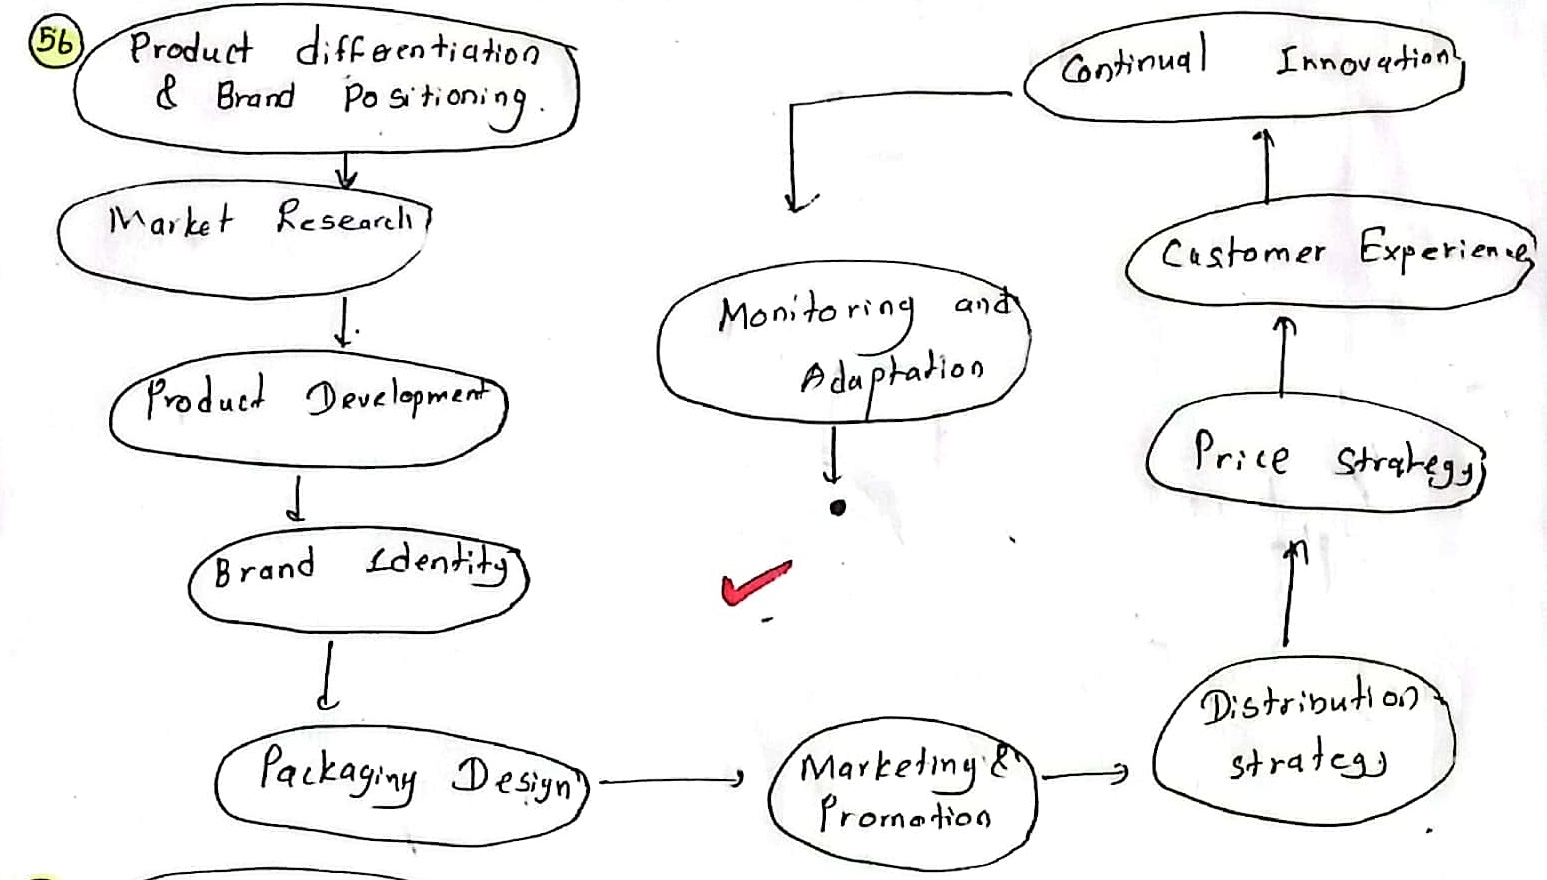 56
Product differentiation
& Brand Positioning.
Market Research
Product Development
Brand Identity
Packaging Design
Marketing &
Promotion
Distribution
strategy
Price strategy
Customer Experience
Continual Innovation
Monitoring and
Adaptation